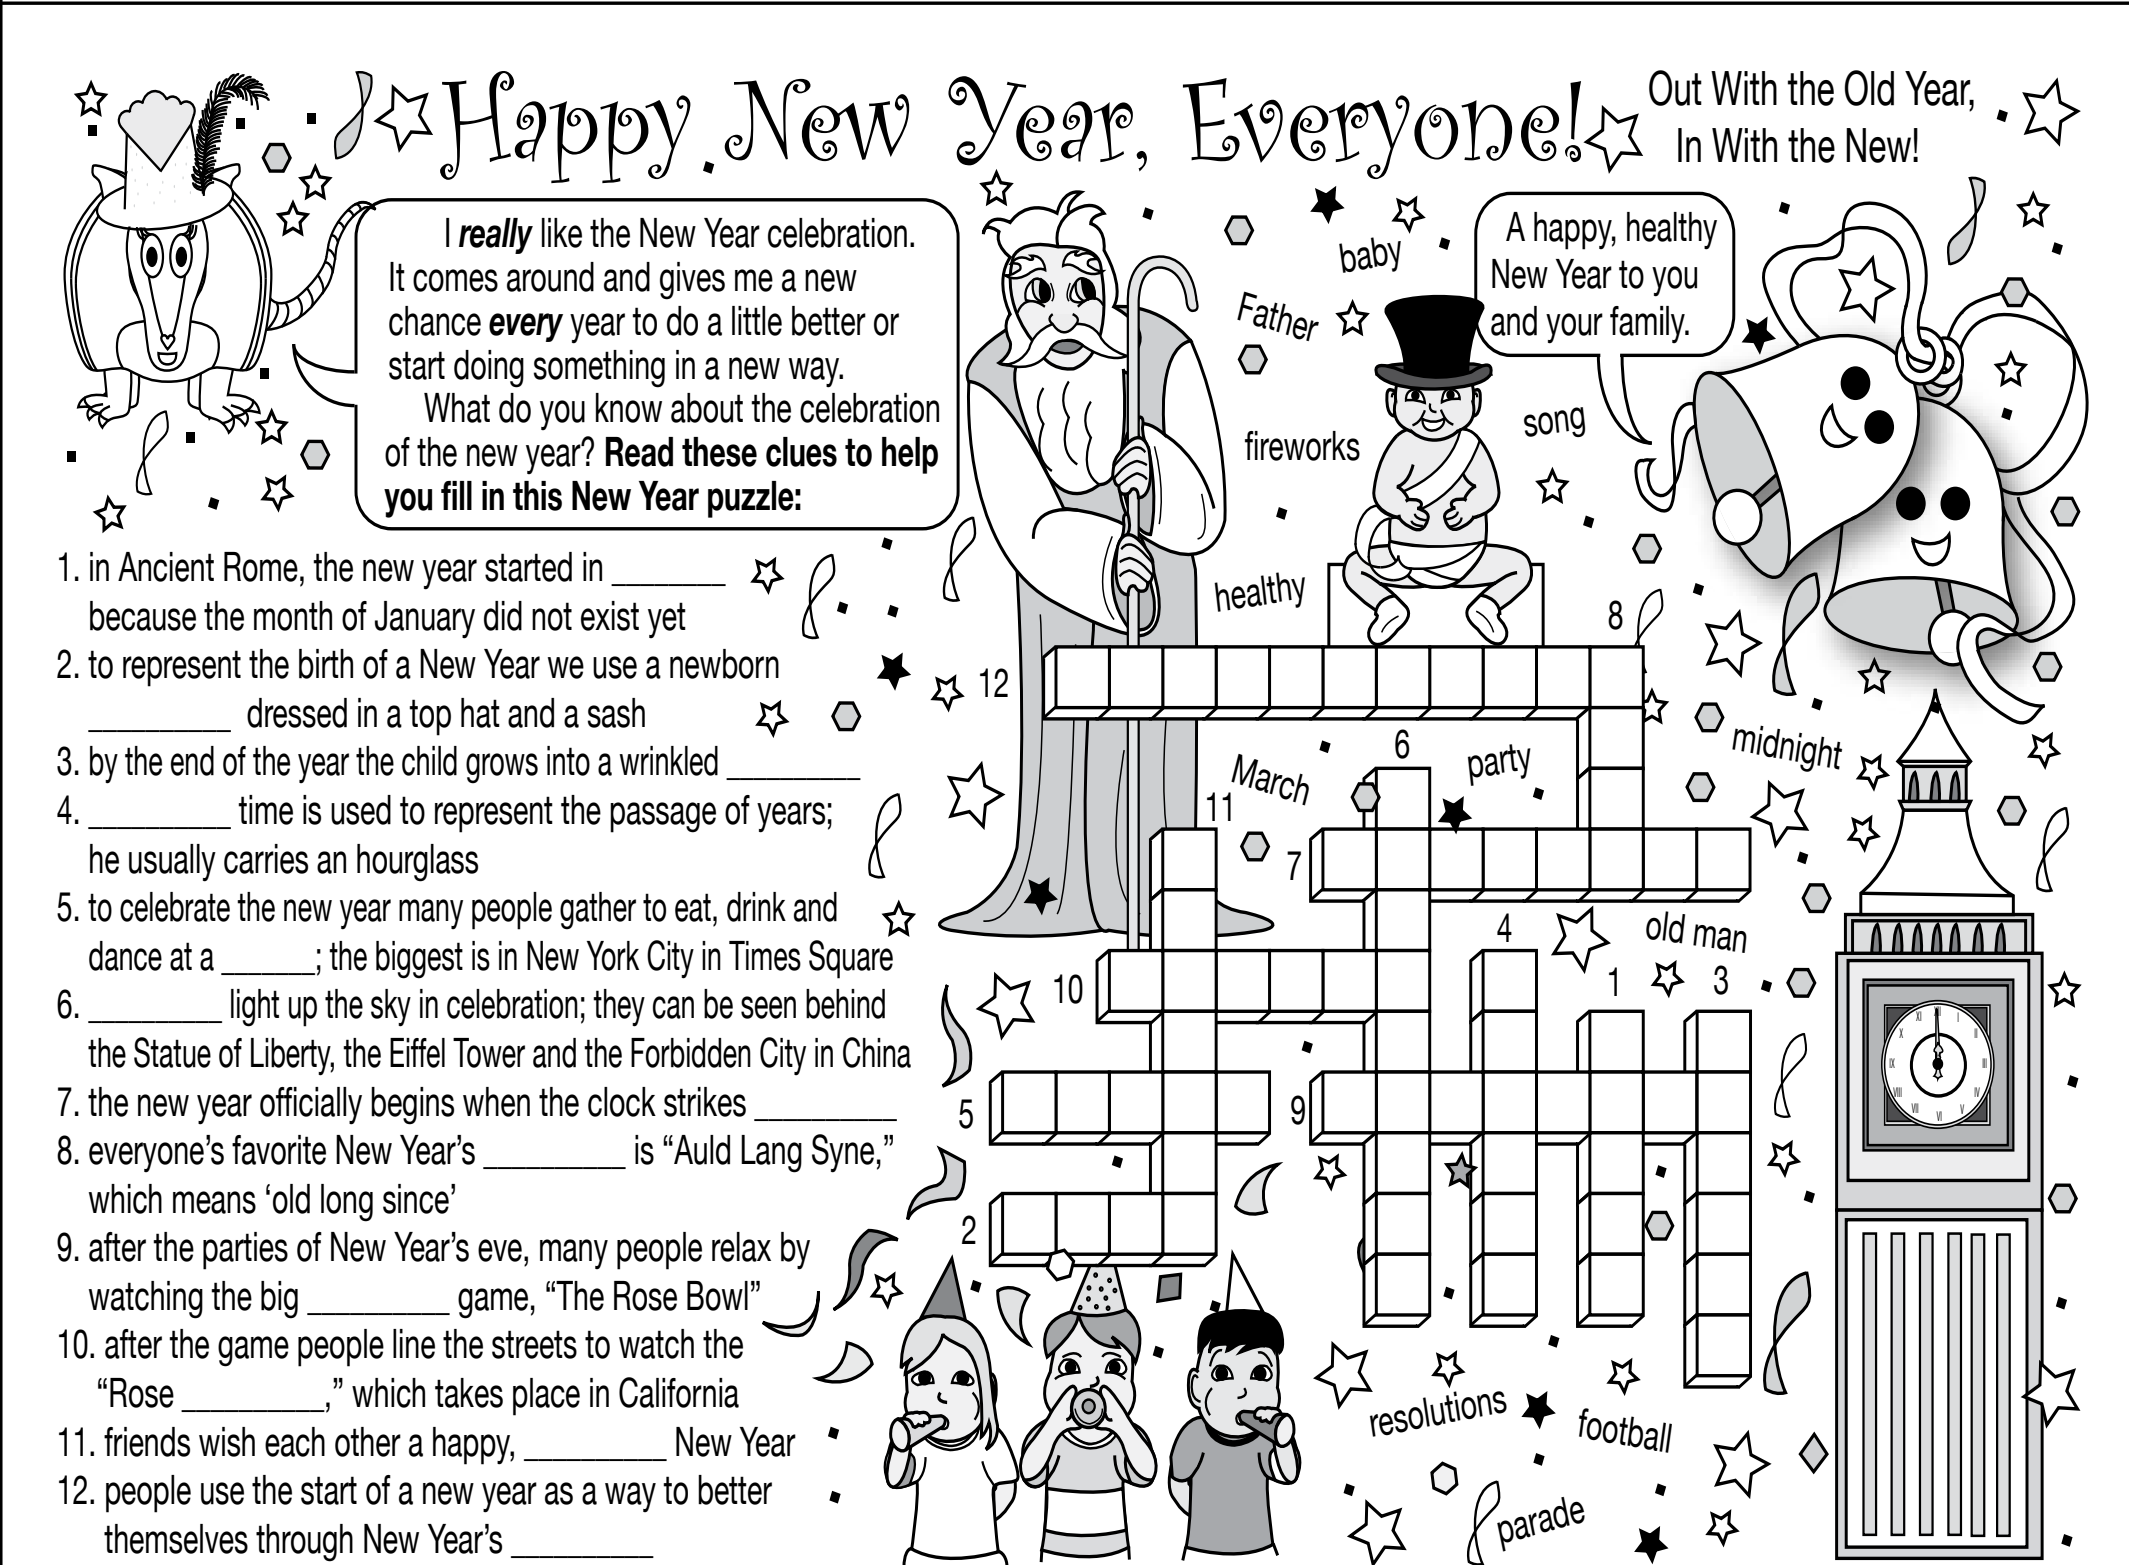 Happy New Year, Everyone!
Out With the Old Year,
In With the New!
I really like the New Year celebration.
It comes around and gives me a new
chance every year to do a little better or
start doing something in a new way.
What do you know about the celebration
of the new year? Read these clues to help
you fill in this New Year puzzle:
A happy, healthy
New Year to you
and your family.
baby
Father
song
fireworks
healthy
1. in Ancient Rome, the new year started in ________
because the month of January did not exist yet
2. to represent the birth of a New Year we use a newborn
__________ dressed in a top hat and a sash
3. by the end of the year the child grows into a wrinkled _________
4. __________ time is used to represent the passage of years;
he usually carries an hourglass
5. to celebrate the new year many people gather to eat, drink and
dance at a _______; the biggest is in New York City in Times Square
6. __________ light up the sky in celebration; they can be seen behind
the Statue of Liberty, the Eiffel Tower and the Forbidden City in China
7. the new year officially begins when the clock strikes __________
8. everyone’s favorite New Year’s __________ is “Auld Lang Syne,”
which means ‘old long since’
9. after the parties of New Year’s eve, many people relax by
watching the big __________ game, “The Rose Bowl”
10. after the game people line the streets to watch the
“Rose __________,” which takes place in California
11. friends wish each other a happy, __________ New Year
12. people use the start of a new year as a way to better
themselves through New Year’s __________
8
12
6
party
midnight
March
11
7
4
old man
10
1
3
5
9
2
XII
I
II
III
IV
V
VI
VII
VIII
IX
X
XI
resolutions
football
parade